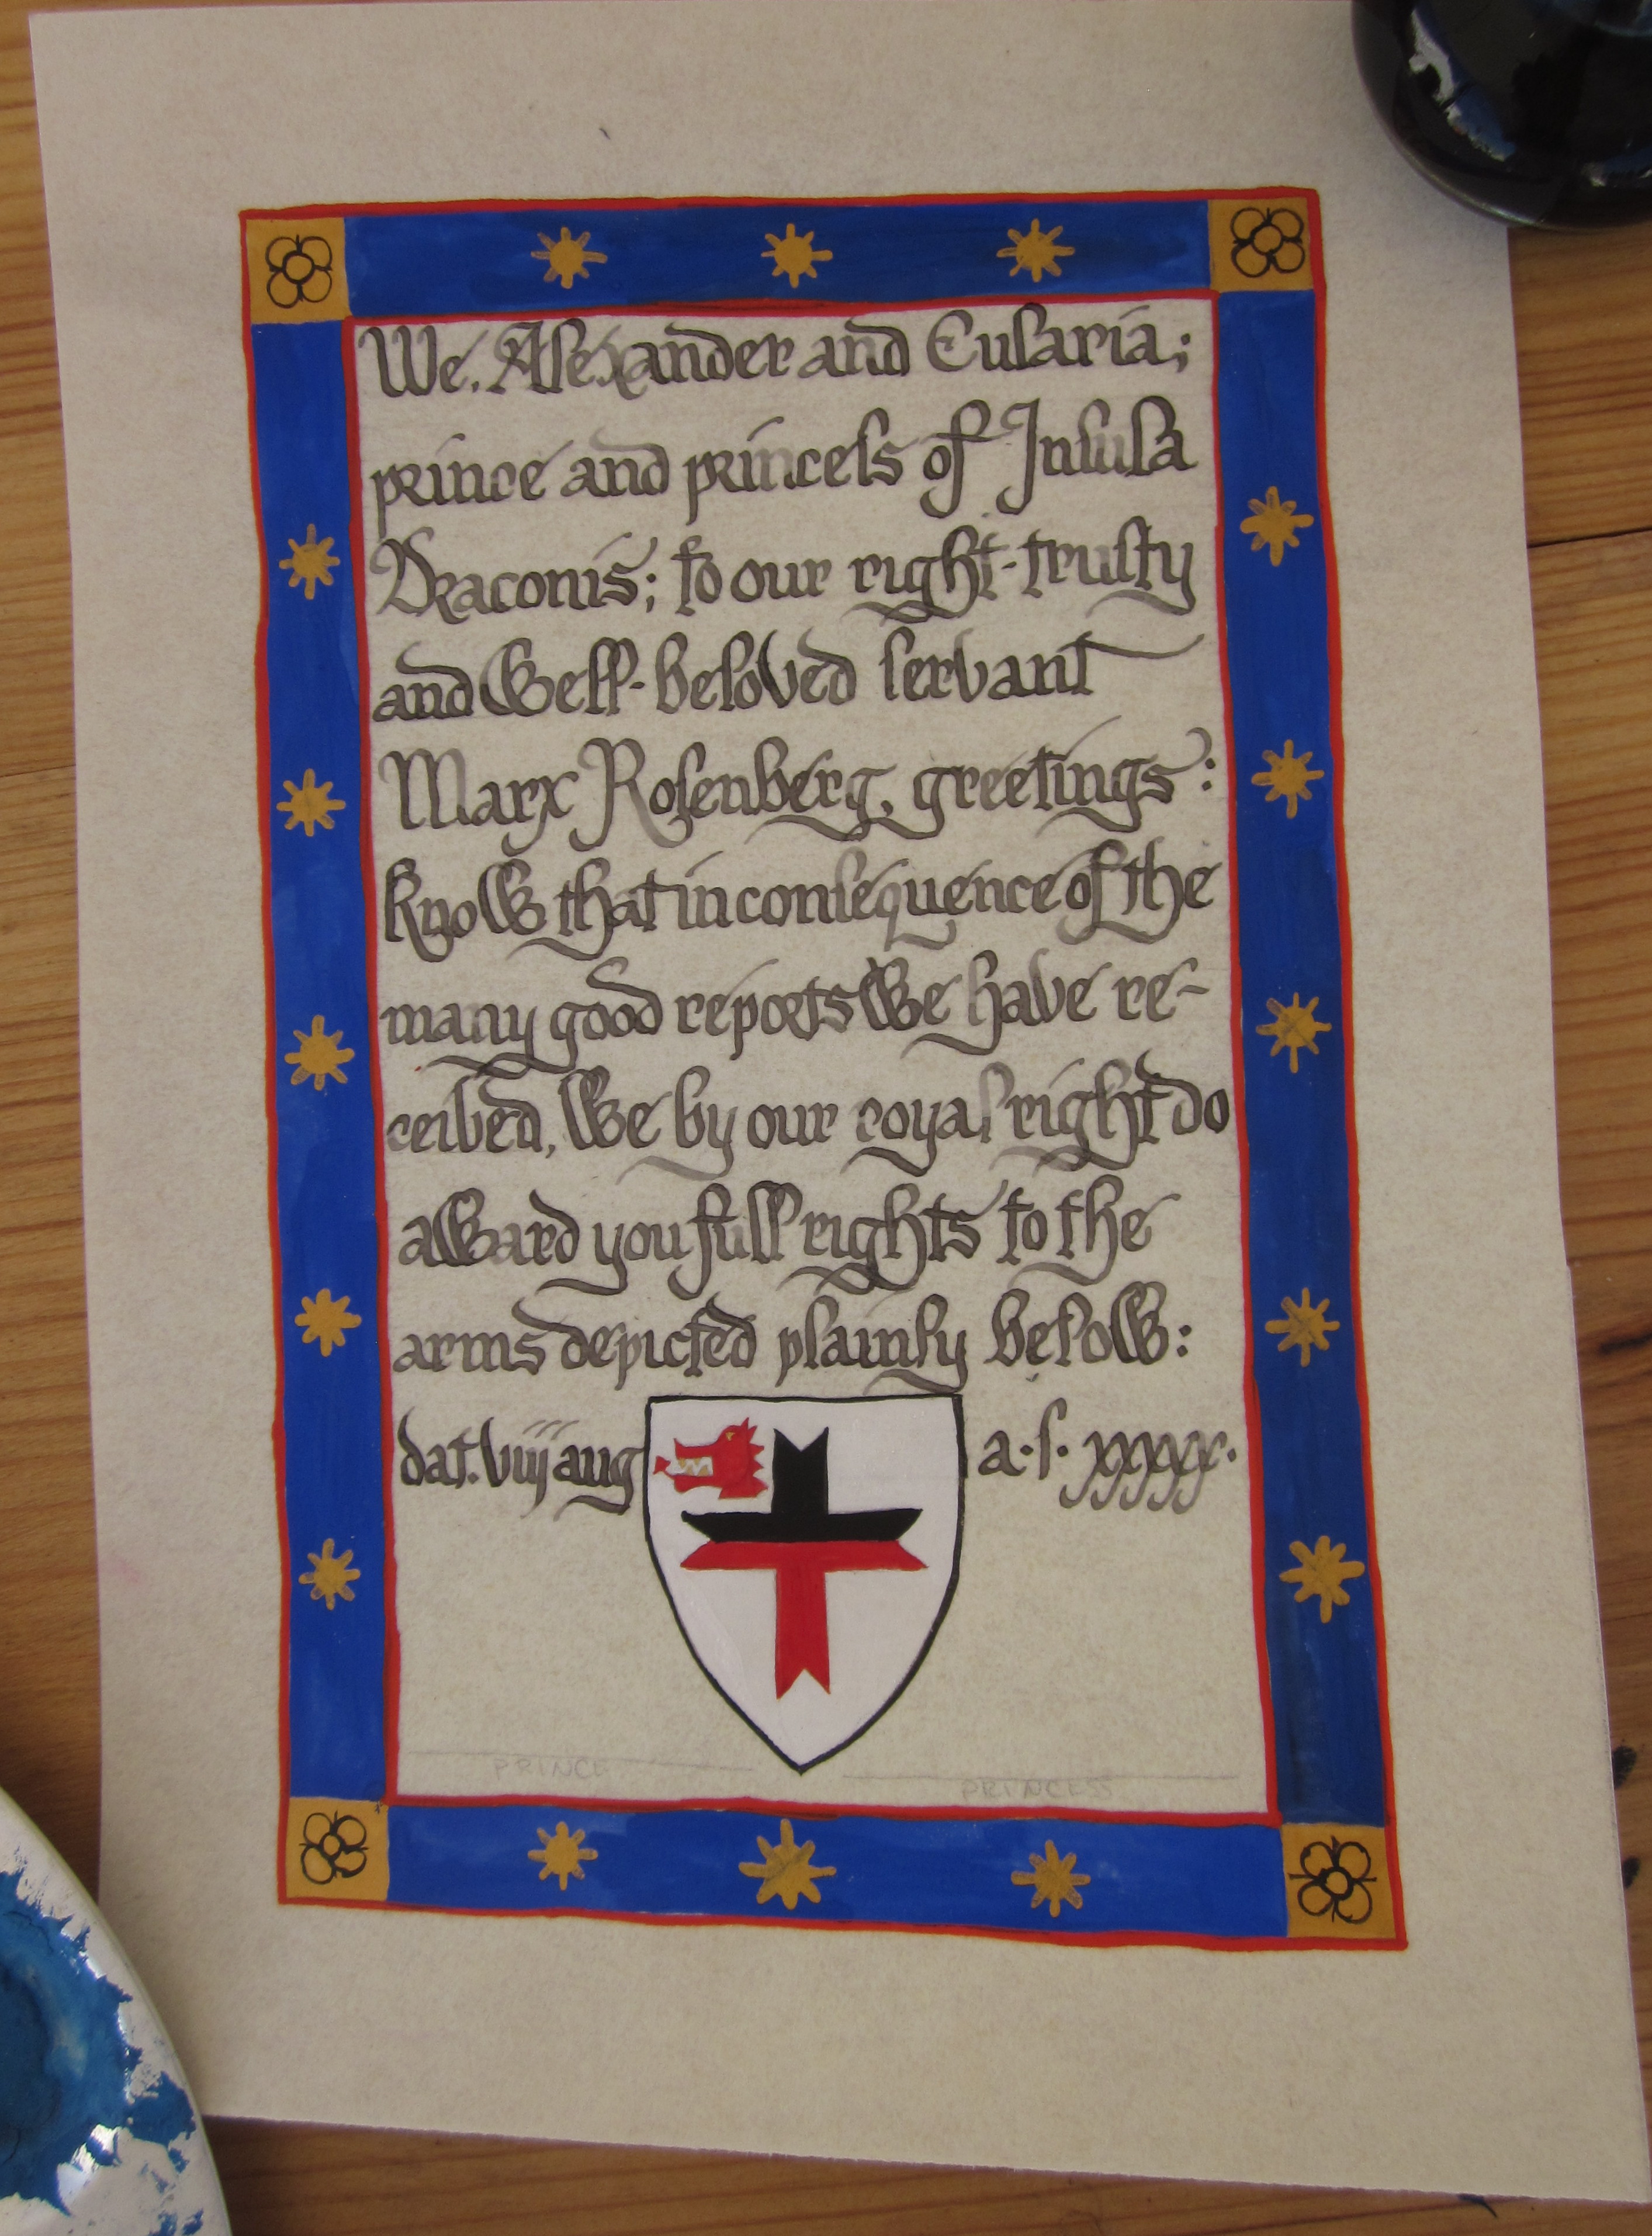 We, Alexander and Eularia;
prince and princeſs of Inſula
Draconis; to our right-truſty
and well-beloved ſervant
Marx Roſenberg, greetings:
know that in conſequence of the
many good reports we have re-
ceived, we by our royal right do
award you full rights to the
arms depicted plainly below:
dat. viij aug a.ſ. xxxxx.
PRINCE
PRINCESS